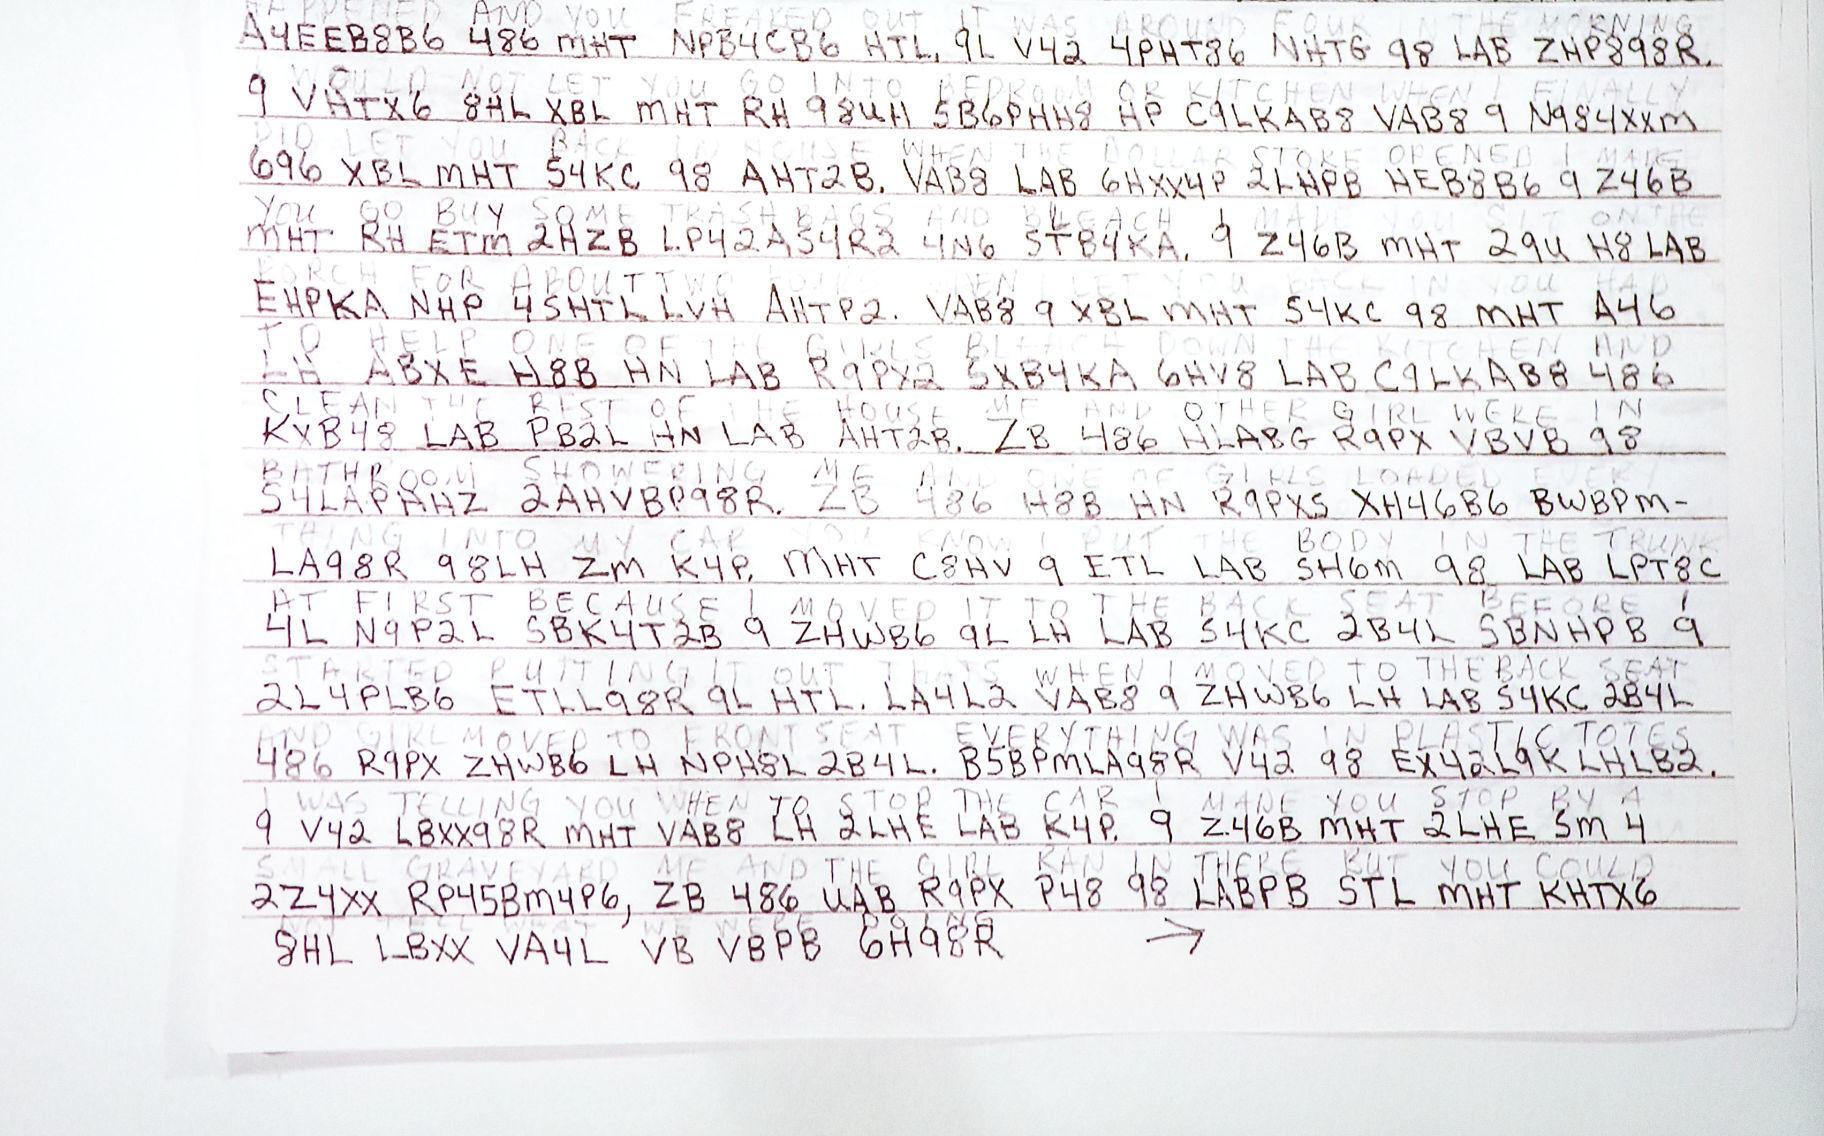 HAPPENED AND YOU FREAKED OUT IT WAS AROUND FOUR IN THE MORNING
A4EEB8B6 486 MHT NPB4CB6 HTL, 9L V42 4PHT86 NHTG 98 LAB ZHP898R.
I WOULD NOT LET YOU GO INTO BEDROOM OR KITCHEN WHEN I FINALLY
9 VHTX6 8HL XBL MHT RH 98UH SB6PHH8 HP C9LKAB8 VAB8 9 N984XXM
DID LET YOU BACK IN HOUSE WHEN THE DOLLAR STORE OPENED I MADE
696 XBL MHT S4KC 98 AHT2B. VAB8 LAB 6HXX4P 2LHPB HEB8B6 9 Z46B
YOU GO BUY SOME TRASH BAGS AND BLEACH I MADE YOU SIT ON THE
MHT RH ETM 2HZB LP42AS4R2 4N6 STB4KA. 9 Z46B MHT 29U H8 LAB
PORCH FOR ABOUT TWO WHEN I LET YOU BACK IN YOU HAD
EHPKA NHP 4SHTL LVH AHTP2. VAB8 9 XBL MHT S4KC 98 MHT A46
TO HELP ONE OF THE GIRLS BLEACH DOWN THE KITCHEN AND
LH ABXE H8B HN LAB R9PX2 SXB4KA 6HV8 LAB C9LKAB8 486
CLEAN THE REST OF THE HOUSE ME AND OTHER GIRL WERE IN
KXB48 LAB PB2L HN LAB AHT2B. ZB 486 HLABG R9PX VBVB 98
BATHROOM SHOWERING ME AND ONE OF GIRLS LOADED EVERY
S4LAPHHZ 2AHVBP98R. ZB 486 H8B HN R9PXS XH46B6 BWBPM-
THING INTO MY CAR YOU KNOW I PUT THE BODY IN THE TRUNK
LA98R 98LH ZM K4P. MHT C8HV 9 ETL LAB SH6M 98 LAB LPT8C
AT FIRST BECAUSE I MOVED IT TO THE BACK SEAT BEFORE I
4L N9P2L SBK4T2B 9 ZHWB6 9L LH LAB S4KC 2B4L SBNHPB 9
STARTED PUTTING IT OUT THATS WHEN I MOVED TO THE BACK SEAT
2L4PLB6 ETLL98R 9L HTL. LA4L2 VAB8 9 ZHWB6 LH LAB S4KC 2B4L
AND GIRL MOVED TO FRONT SEAT EVERYTHING WAS IN PLASTIC TOTES
486 R9PX ZHWB6 LH NPH8L 2B4L. B5BPMLA98R V42 98 EX42L9K LHLB2.
I WAS TELLING YOU WHEN TO STOP THE CAR I MADE YOU STOP BY A
9 V42 LBXX98R MHT VAB8 LH 2LHE LAB K4P. 9 Z46B MHT 2LHE SM 4
SMALL GRAVEYARD ME AND THE GIRL RAN IN THERE BUT YOU COULD
2Z4XX RP45BM4P6, ZB 486 UAB R9PX P48 98 LABPB STL MHT KHTX6
NOT TELL WHAT WE WERE DOING
8HL LBXX VA4L VB VBPB 6H98R →